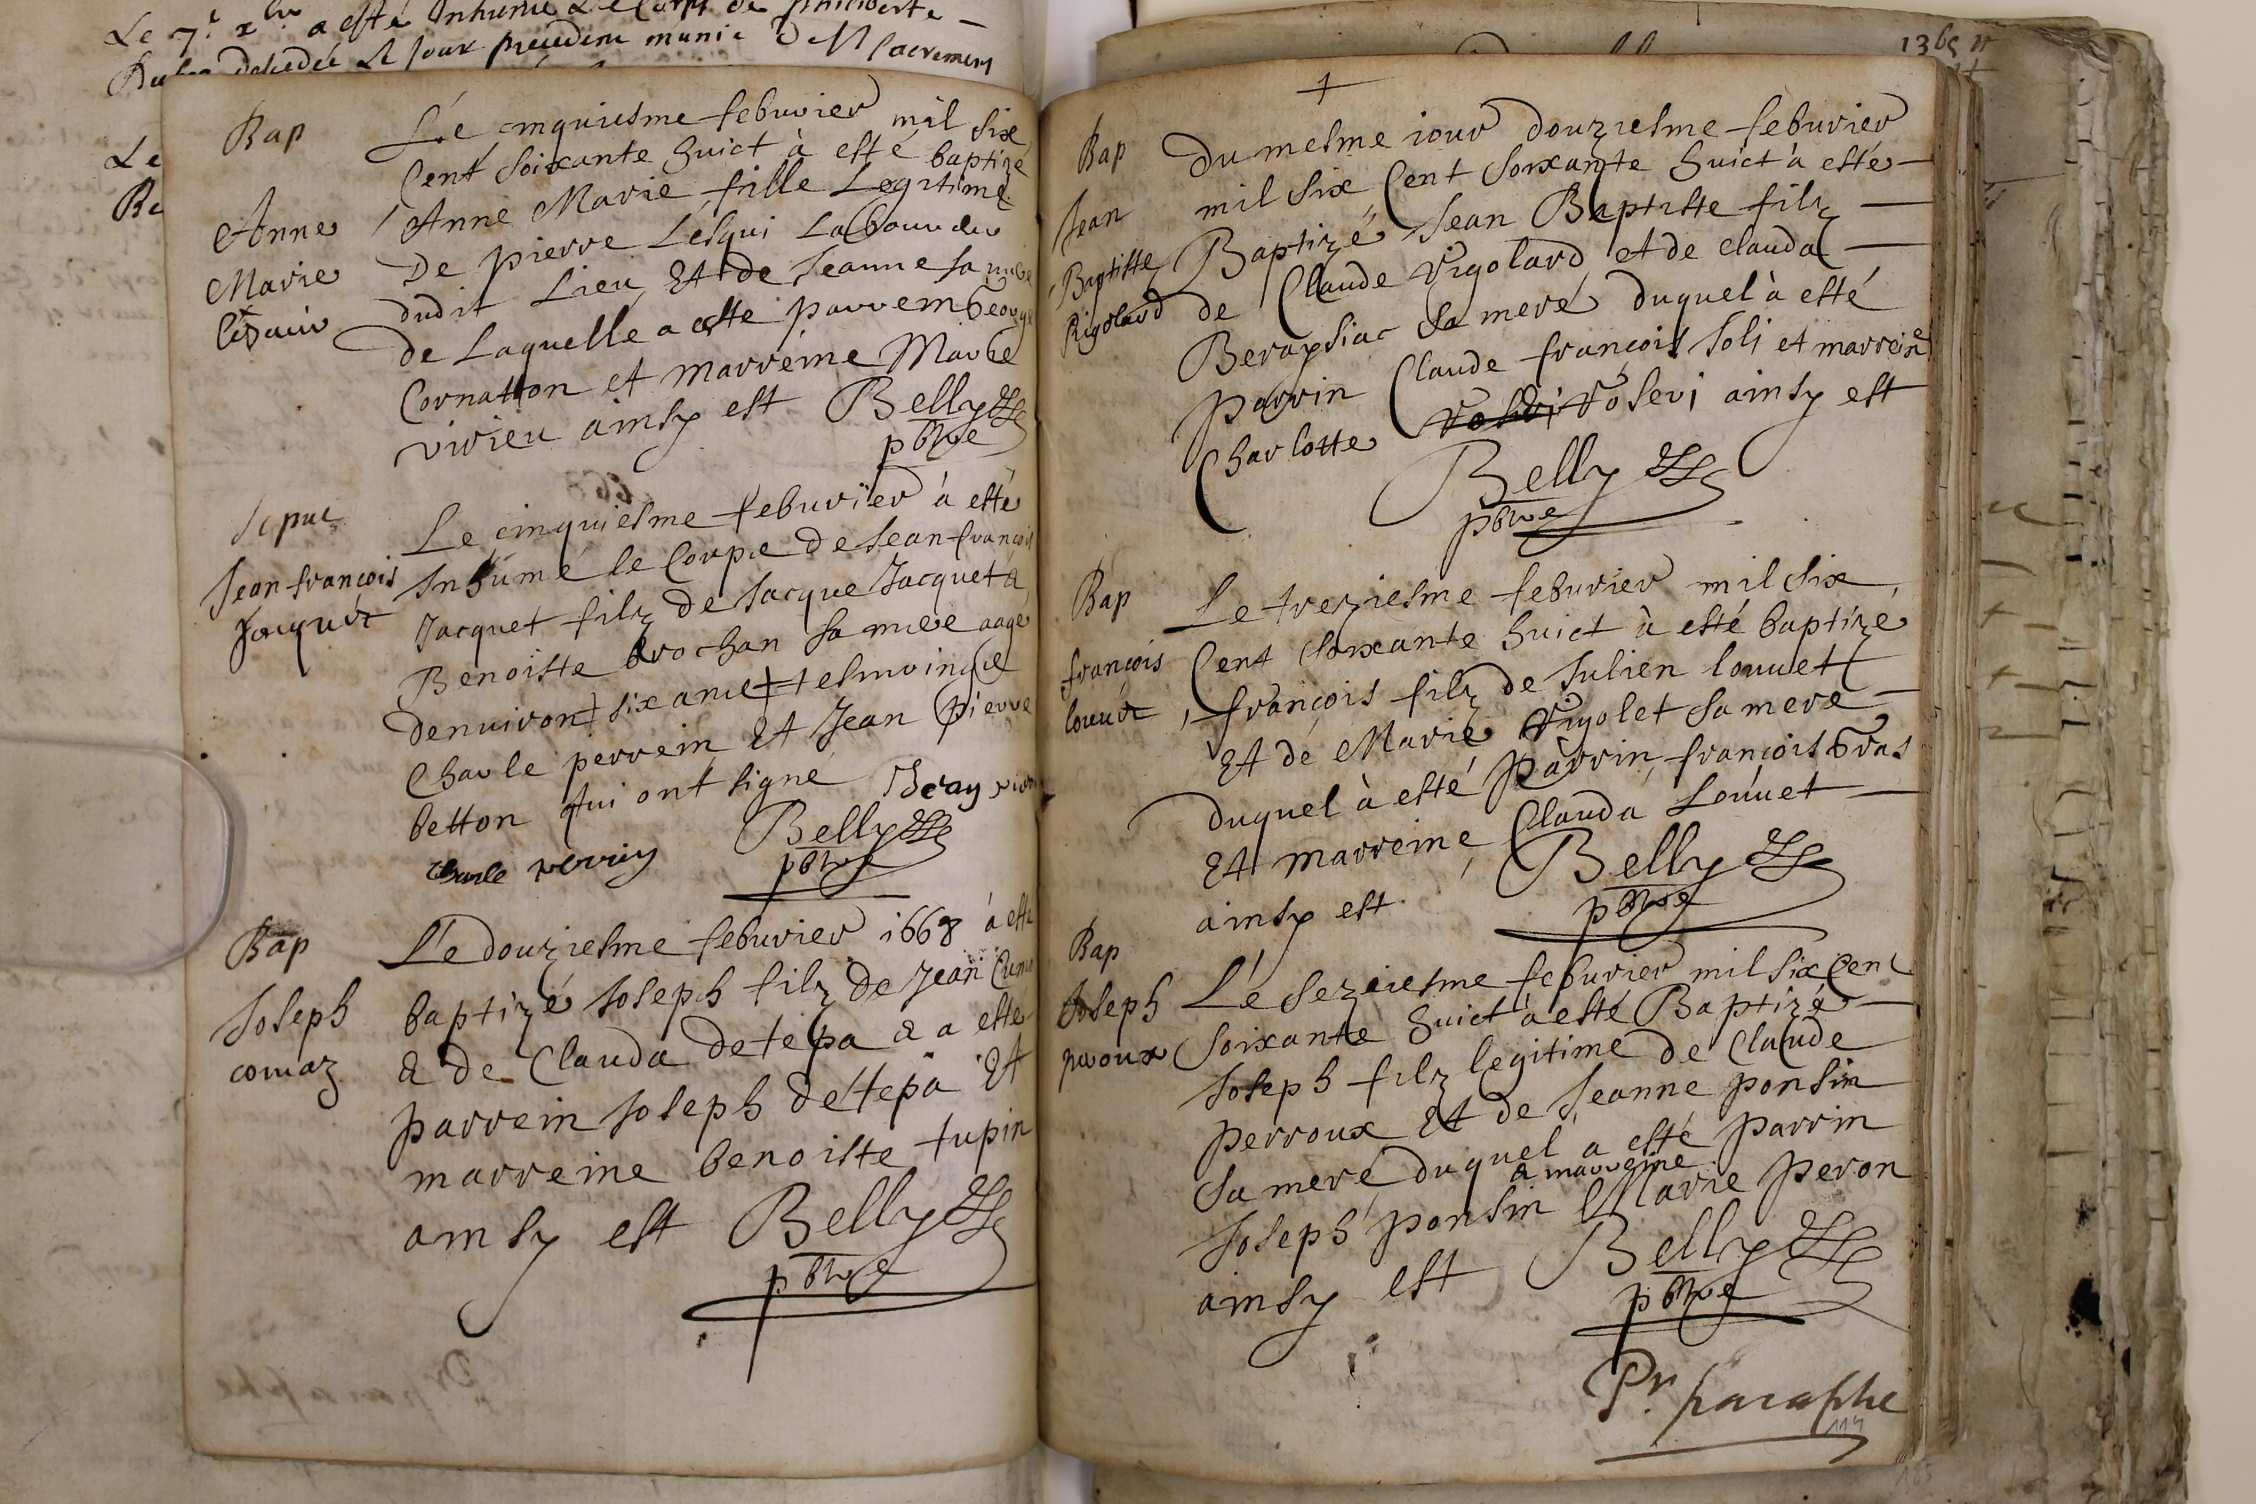 Le 7e xbre a esté Inhumé Le Corps de philiberte
decedée Le Jour precedent munie des sacrements
Le
Bap
Le cinquiesme feburier mil six
Cent soixante huict à esté baptizé
Anne
Marie
Anne Marie fille Legitime
De pierre Lesqui Laboureur
dudit Lieu Et de Jeanne sa mere
de Laquelle a este parrem George
Cornatton et marreine Marie
vivieu ainsy est Belly
pbre
Sepul
Jean francois
Jacquet
Le cinquiesme feburier à esté
Inhumé le Corps de Jean francois
Jacquet filz de Jacque Jacquet &
Benoiste brochan sa mere aagé
denuiron six ans tesmoings
Charle perrein Et Jean pierre
betton qui ont signé
Belly
pbre
charle perrin
Bap
Joseph
comaz
Le douziesme feburier 1668 à esté
baptizé Joseph filz de Jean
& de Clauda detepa & a esté
parrein Joseph detepa Et
marreine benoiste tupin
ainsy est Belly
pbre
13 bis
+
Bap
Jean
Baptiste
Rigolard
du mesme iour douziesme feburier
mil six Cent soixante huict à esté
Baptizé Jean Baptiste filz
de Claude Rigolard et de clauda
sa mere duquel à esté
parrin Claude françois soli et marreine
Charlotte Roseri ainsy est
Belly
pbre
Bap
françois
louuet
Le treziesme feburier mil six
Cent soixante huict à esté baptizé
françois filz de Julien louuet
Et de Marie Rigolet sa mere
duquel à esté parrin françois Gras
Et marreine Clauda Louuet
ainsy est
Belly
pbre
Bap
Joseph
peroux
Le seziesme feburier mil six Cent
soixante huict à esté Baptizé
Joseph filz legitime de Claude
perroux Et de Jeanne ponsin
sa mere duquel a esté parrin
& marreine
Joseph ponsin Marie peron
ainsy est
Belly
pbre
Pr. paraphe
114